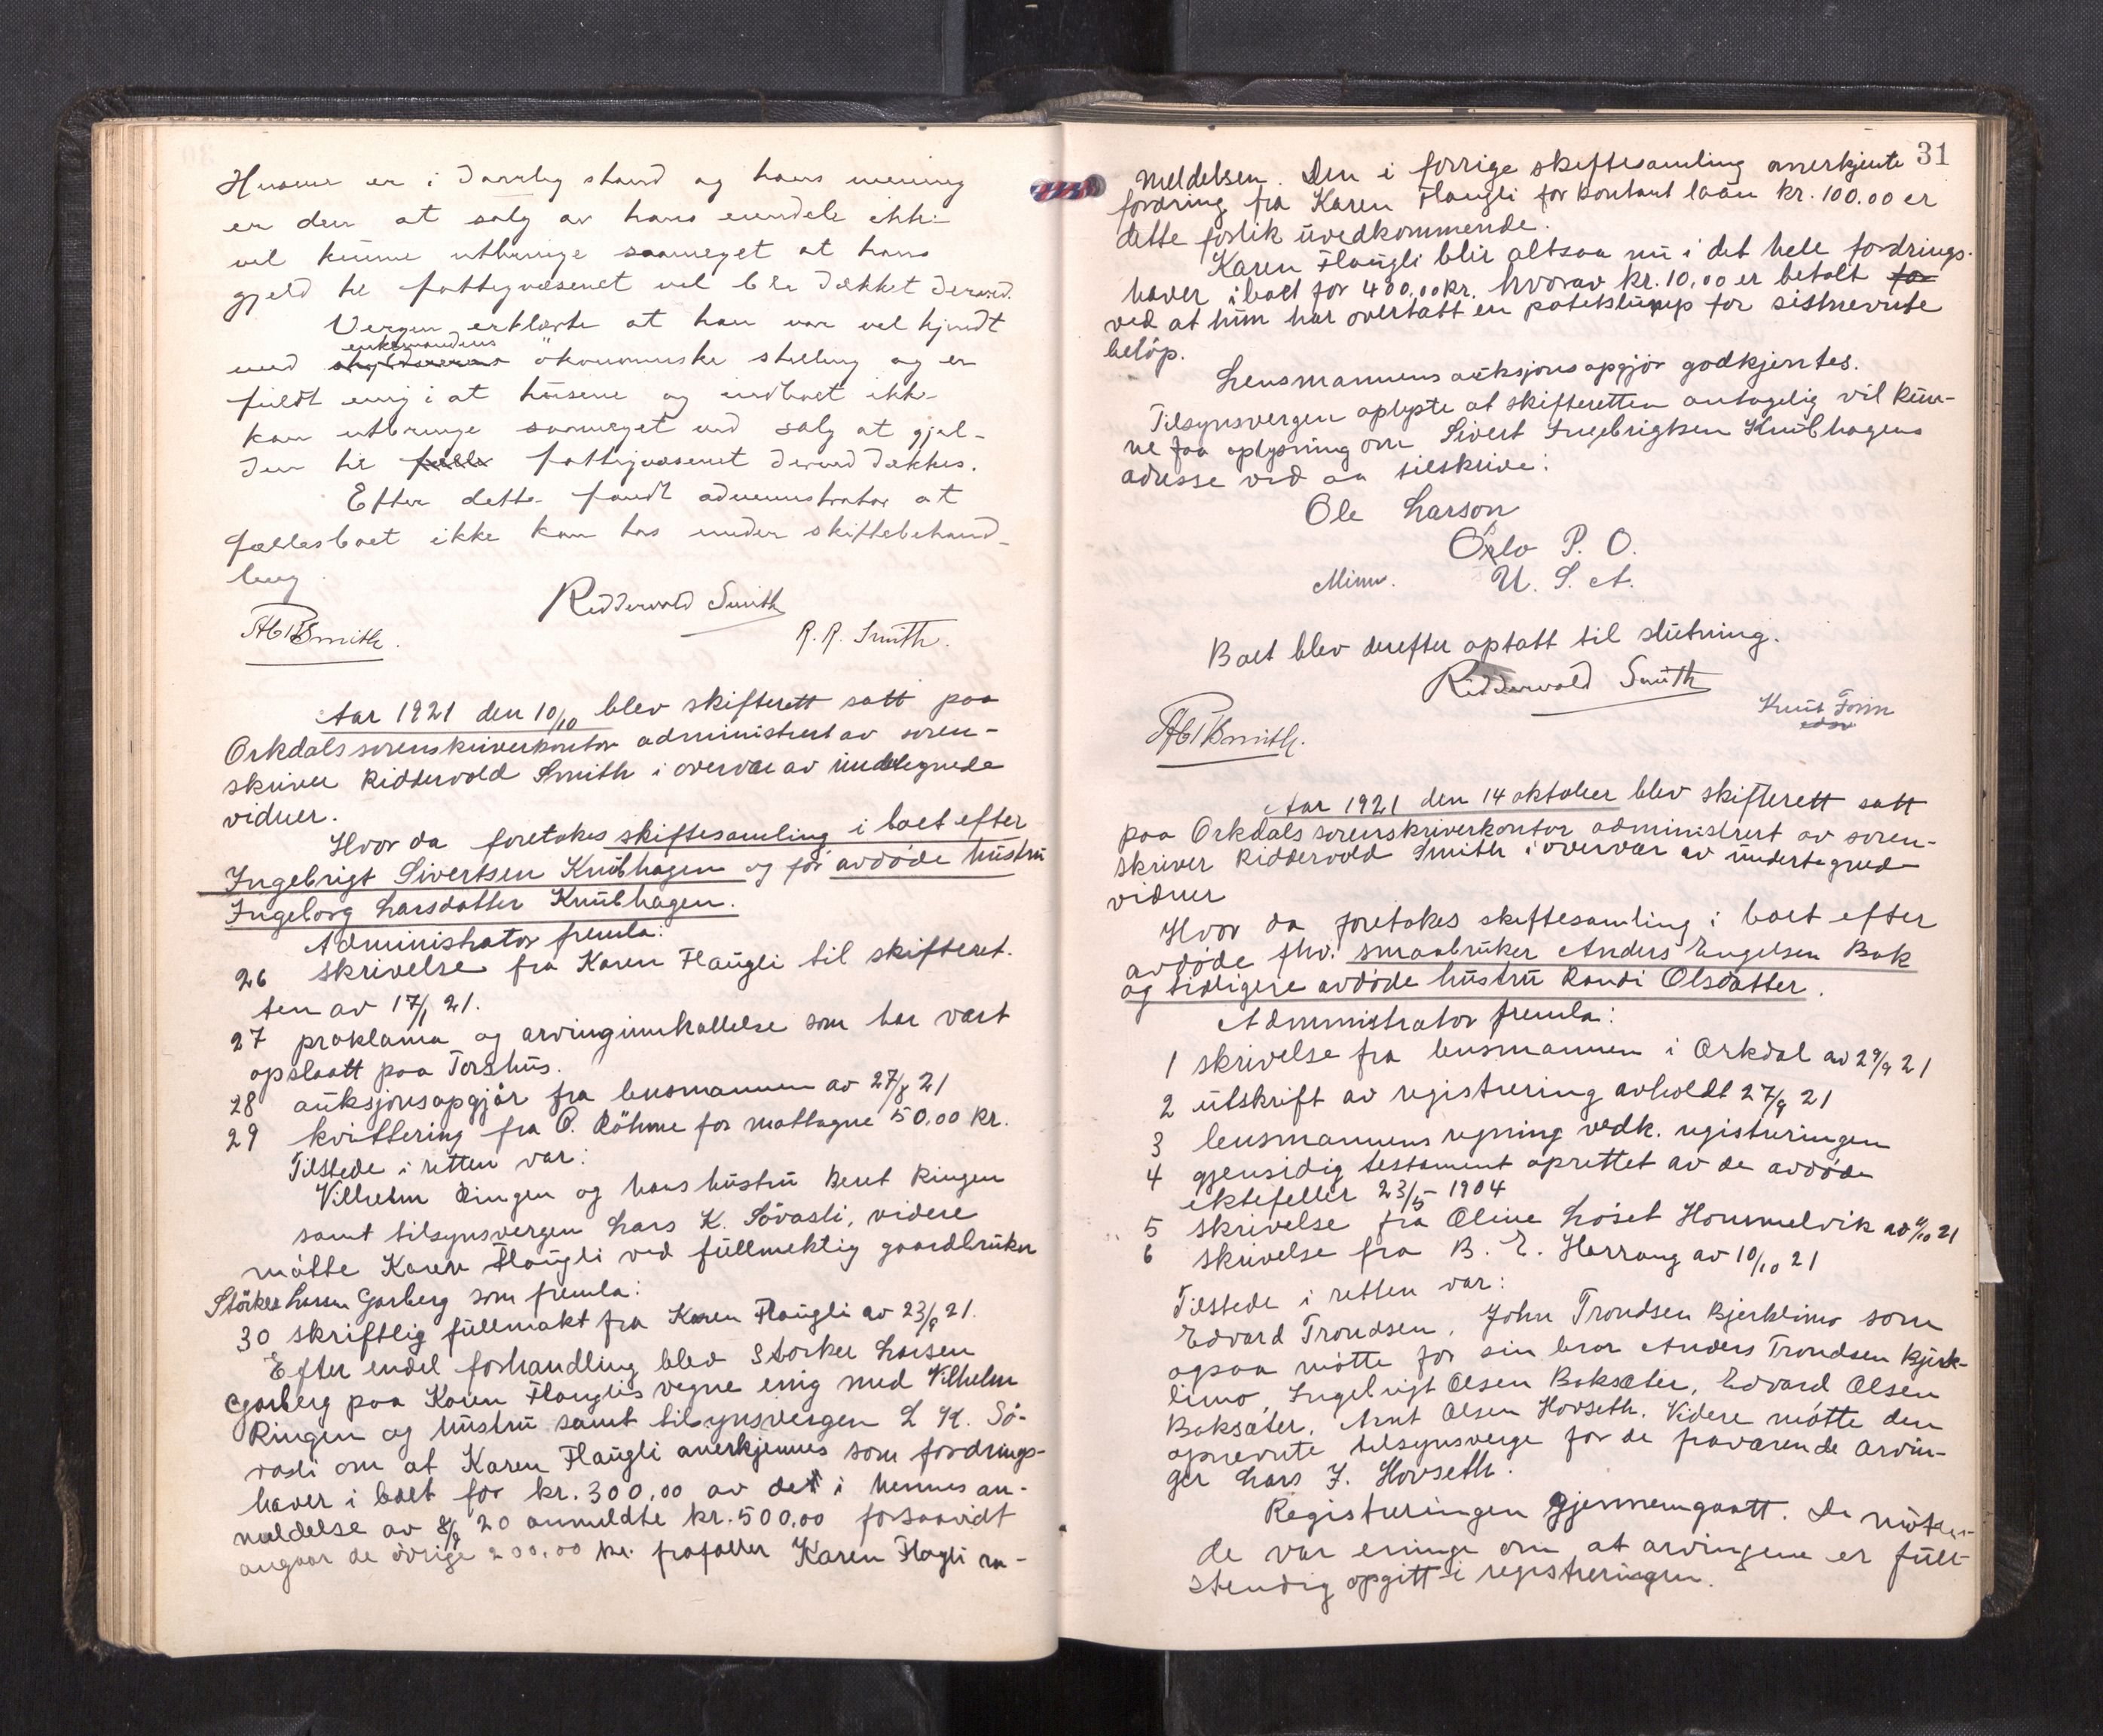 Husene er i daarlig stand og hans mening
er den at salg av hans eiendele ikke
vil kunne utbringe saameget at hans
gjeld til fattigvæsenet vil bli dækket derved.
Vergen erklærte at han var vel kjendt
enkemandens
med ökonomiske stilling og er
fuldt enig i at husene og indboet ikke
kan utbringe saameget ved salg at gjæl-
den til fattigvæsenet derved dækkes.
Efter dette fandt administrator at
fællesboet ikke kan tas under skiftebehand-
ling.
Riddervold Smith
Smith.
R. R. Smith.
Aar 1921 den 10/10 blev skifterett satt paa
Orkdals sorenskriverkontor administrert av soren-
skriver Riddervold Smith i overvær av undertegnede
vidner.
Hvor da foretokes skiftesamling i boet efter
Ingebrigt Sivertsen Knubhagen og før avdøde hustru
Ingeborg Larsdatter Knubhagen.
Administrator fremla:
26 skrivelse fra Karen Flaugli til skifteret-
ten av 17/1 21.
27 proklama og arvinginnkallelse som har vært
opslaatt paa Torshus.
28 auksjonsopgjør fra lensmannen av 27/8 21
29 kvittering fra O. Röhme for mottagne 50,00 kr.
Tilstede i retten var:
Vilhelm Ringen og hans hustru Beret Ringen
samt tilsynsvergen Lars K. Sövasli, videre
møtte Karen Flaugli ved fullmektig gaardbruker
Störker Larsen Garberg som fremla:
30 skriftlig fullmakt fra Karen Flaugli av 23/9 21.
Efter endel forhandling blev Storker Larsen
Garberg paa Karen Flauglis vegne enig med Vilhelm
Ringen og hustru samt tilsynsvergen L. K. Sö-
vasli om at Karen Flaugli anerkjennes som fordrings-
haver i boet for kr. 300,00 av det i hennes an-
meldelse av 8/9 20 anmeldte kr. 500,00 forsaavidt
angaar de övrige 200,00 kr. frafaller Karen Flagli an-
31
meldelsen. Den i forrige skiftesamling anerkjente
fordring fra Karen Flaugli for kontant laan kr. 100.00 er
dette forlik uvedkommende.
Karen Flaugli blir altsaa nu i det hele fordrings-
haver i boet for 400,00 kr. hvorav kr. 10,00 er betalt for
ved at hun har overtatt en potetslump for sistnevnte
beløp.
Lensmannens auksjonsopgjør godkjentes.
Tilsynsvergen oplyste at skifteretten antagelig vil kun-
ne faa oplysning om Sivert Ingebrigtsen Knubhagens
adresse ved aa tilskrive:
Ole Larson
Oslo P. O.
Minn. U. S. A.
Boet blev derefter optatt til slutning.
Riddervold Smith
Smith.
Knut
Aar 1921 den 14 oktober blev skifterett satt
paa Orkdals sorenskriverkontor administrert av soren-
skriver Riddervold Smith i overvær av undertegned
vidner
Hvor da foretokes skiftesamling i boet efter
avdøde fhv. smaabruker Anders Engelsen Bak
og tidligere avdøde hustru Randi Olsdatter.
Administrator fremla:
1 skrivelse fra lensmannen i Orkdal av 29/9 21
2 utskrift av registrering avholdt 27/9 21
3 lensmannens regning vedk. registreringen
4 gjensidig testament oprettet av de avdøde
ektefeller 23/5 1904
5 skrivelse fra Oline Löset Hommelvik av /10 21
6 skrivelse fra B. E. Harrang av 10/10 21
Tilstede i retten var:
Edvard Trondsen, John Trondsen Bjerklimo som
ogsaa møtte for sin bror Anders Trondsen Bjerk-
limo, Ingebrigt Olsen Baksæter, Edvard Olsen
Baksæter, Arnt Olsen Hovseth. Videre møtte den
opnevnte tilsynsverge for de fraværende arvin-
ger Lars J. Hovseth.
Registreringen gjennemgaatt. De møten-
de var enige om at arvingene er full-
stendig opgitt i registreringen.